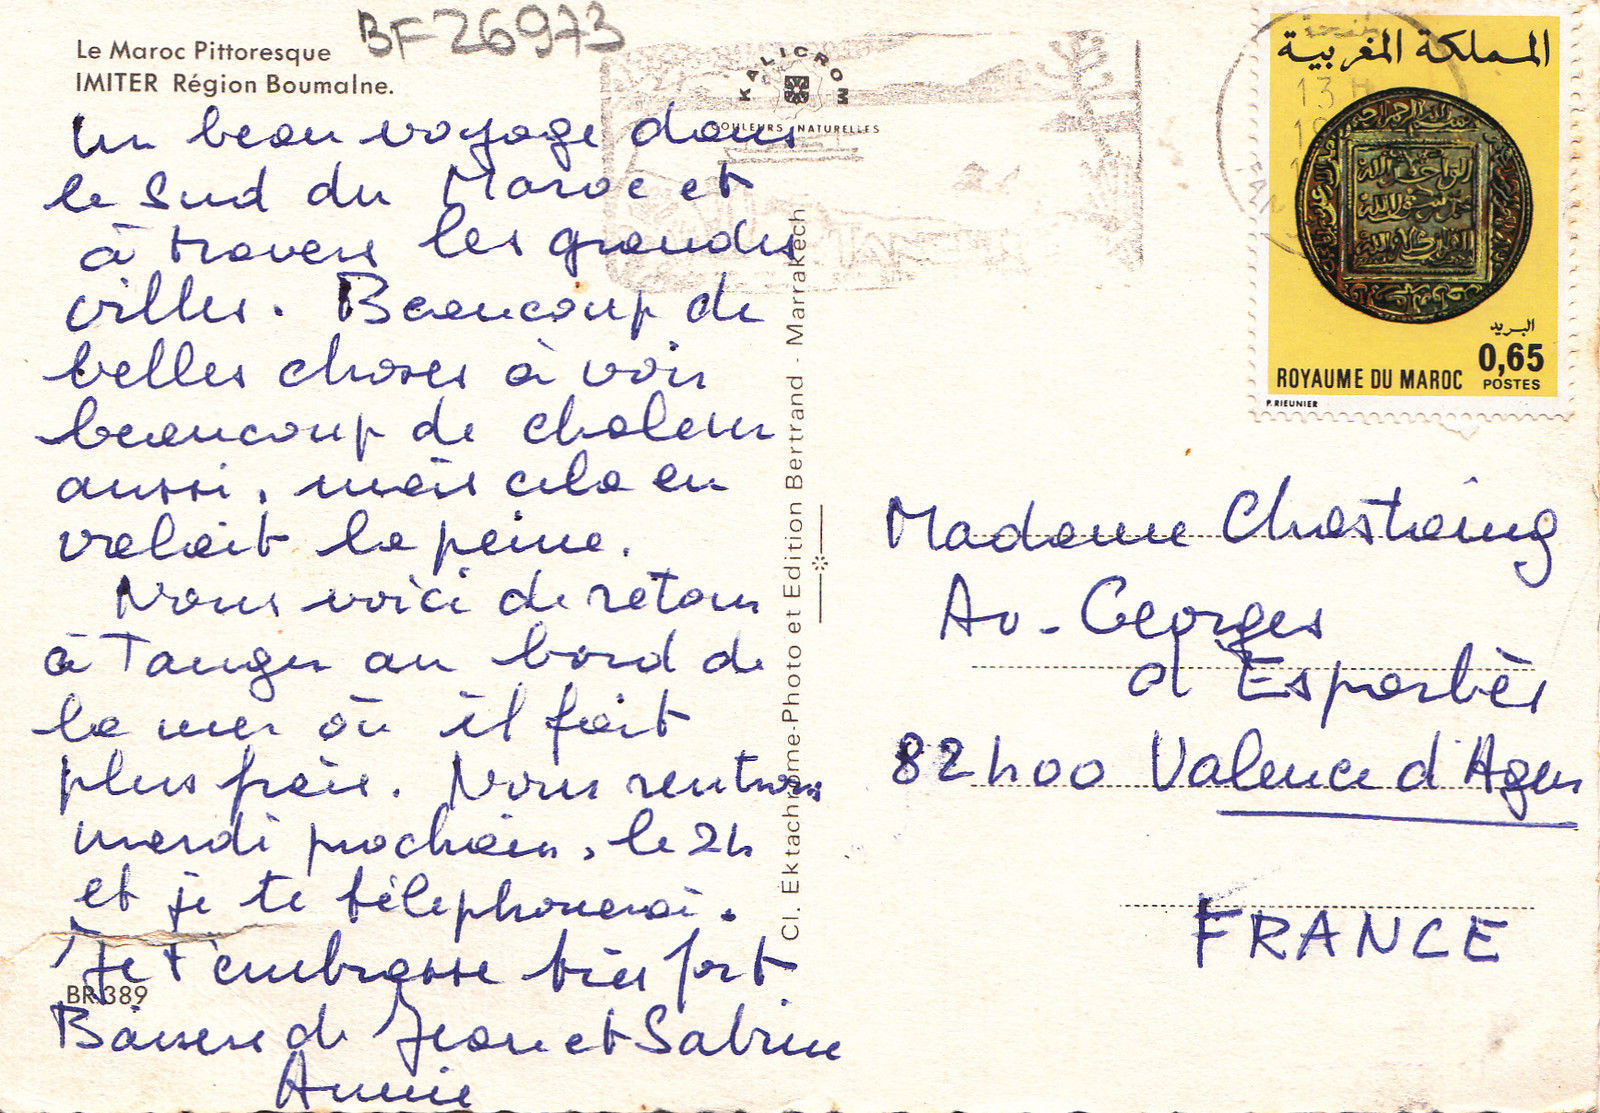 BF26973
Le Maroc Pittoresque
IMITER Région Boumalne.
KALICROM
COULEURS NATURELLES
Un beau voyage dans
le Sud du Maroc et
à travers les grandes
villes. Beaucoup de
belles choses à voir
beaucoup de chaleur
aussi, mais cela en
valait la peine.
Nous voici de retour
à Tanger au bord de
la mer où il fait
plus frais. Nous rentrons
mardi prochain, le 24
et je te téléphonerai.
Je t'embrasse très fort
BR 389
Baisers de Jean et Sabrine
Annie
Cl. Ektachrome-Photo et Edition Bertrand - Marrakech
المملكة المغربية
البريد
0,65
ROYAUME DU MAROC POSTES
P. RIEUNIER
13 H
Madame Chastaing
Av. Georges
d'Esparbès
82400 Valence d'Agen
FRANCE